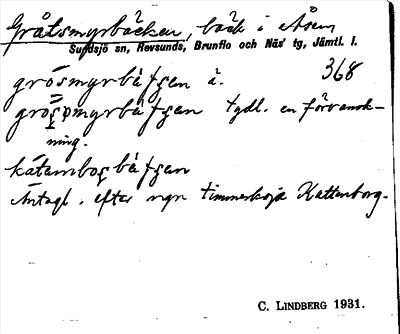 Gråtsmyrbäcken, bäck i Åsen
Sundsjö sn, Revsunds, Brunflo och Näs' tg, Jämtl. l.
grósmyrbäʃʒen ä. 368
gróspmyrbäʃʒen tydl. en förvansk-
ning.
kátambogbäʃʒen
Antagl. efter ngn timmerkoja Kattenborg.
C. LINDBERG 1931.